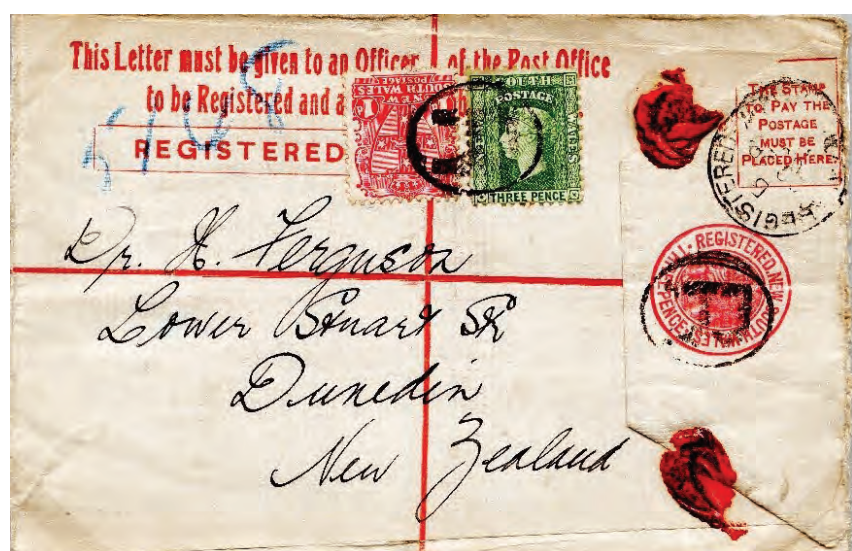 This Letter must be given to an Officer of the Post Office
to be Registered and a
REGISTERED
5708
NEW
SOUTH WALES
POSTAGE
POSTAGE
WALES
THREE PENCE
THE STAMP
TO PAY THE
POSTAGE
MUST BE
PLACED HERE
REGISTERED
REGISTERED, NEW SOUTH WALES
THREE PENCE
Dr. H. Ferguson
Lower Stuart St
Dunedin
New Zealand